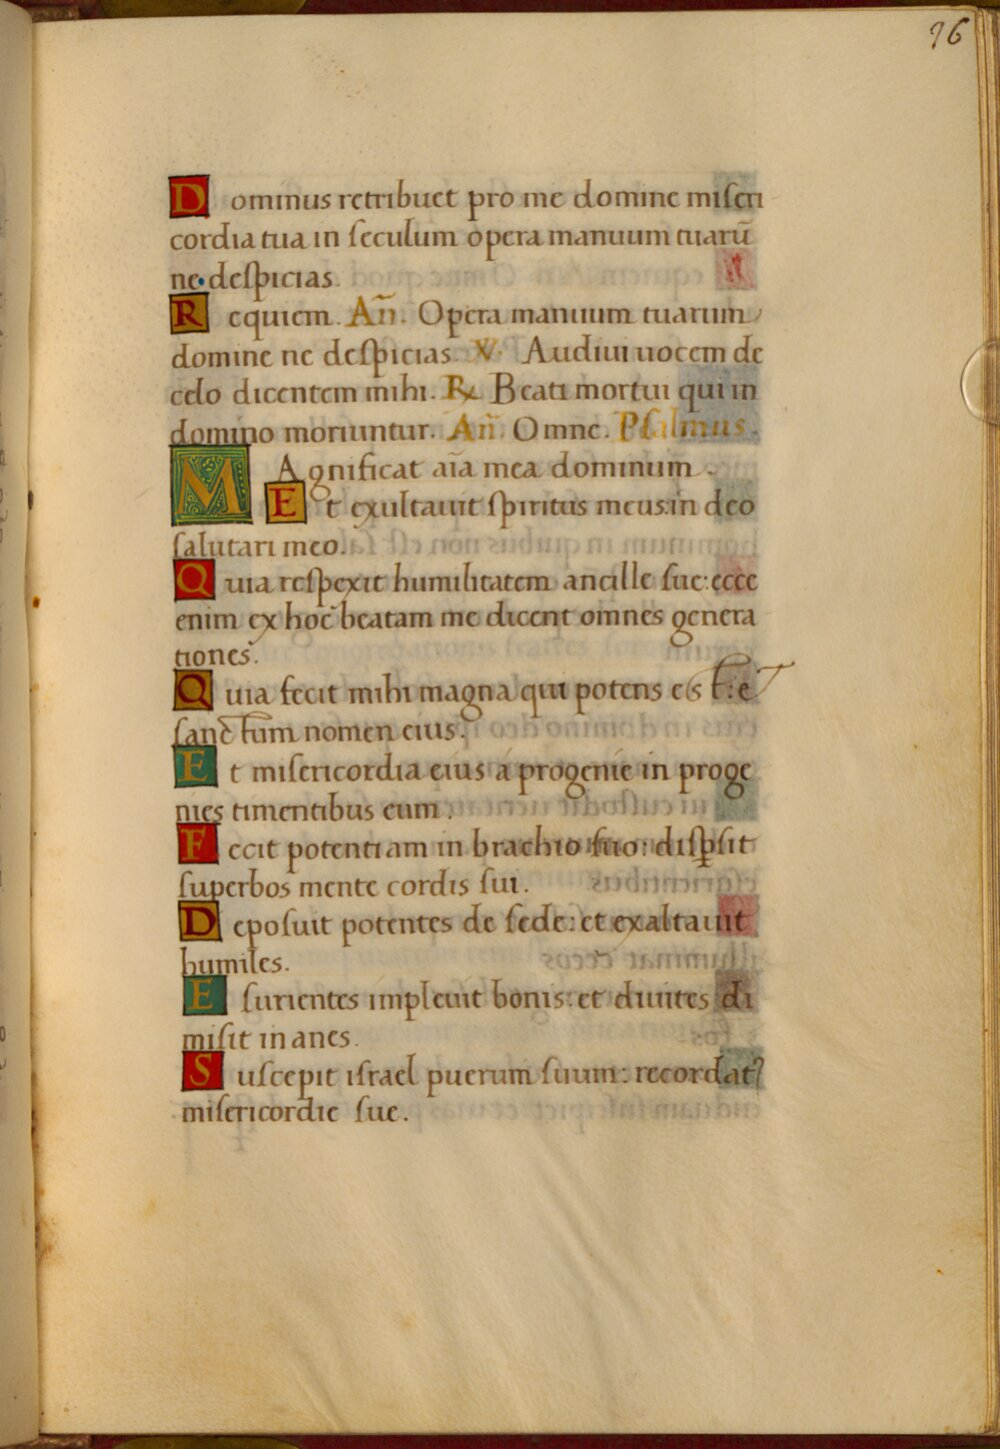 96
Dominus retribuet pro me domine miseri
cordia tua in seculum opera manuum tuarū
ne despicias.
Requiem. Añ. Opera manuum tuarum
domine ne despicias. V. Audiui uocem de
celo dicentem mihi. R. Beati mortui qui in
domino moriuntur. Añ. Omne. Psalmus.
MAgnificat aīa mea dominum.
Et exultauit spiritus meus: in deo
salutari meo.
Quia respexit humilitatem ancille sue: ecce
enim ex hoc beatam me dicent omnes genera
tiones.
Quia fecit mihi magna qui potens est: et
sanctum nomen eius.
Et misericordia eius á progenie in proge
nies timentibus eum.
Fecit potentiam in brachio suo: disp̱sit
superbos mente cordis sui.
Deposuit potentes de sede: et exaltauit
humiles.
Esurientes impleuit bonis: et diuites di
misit inanes.
Suscepit israel puerum suum: recordatꝰ
misericordie sue.